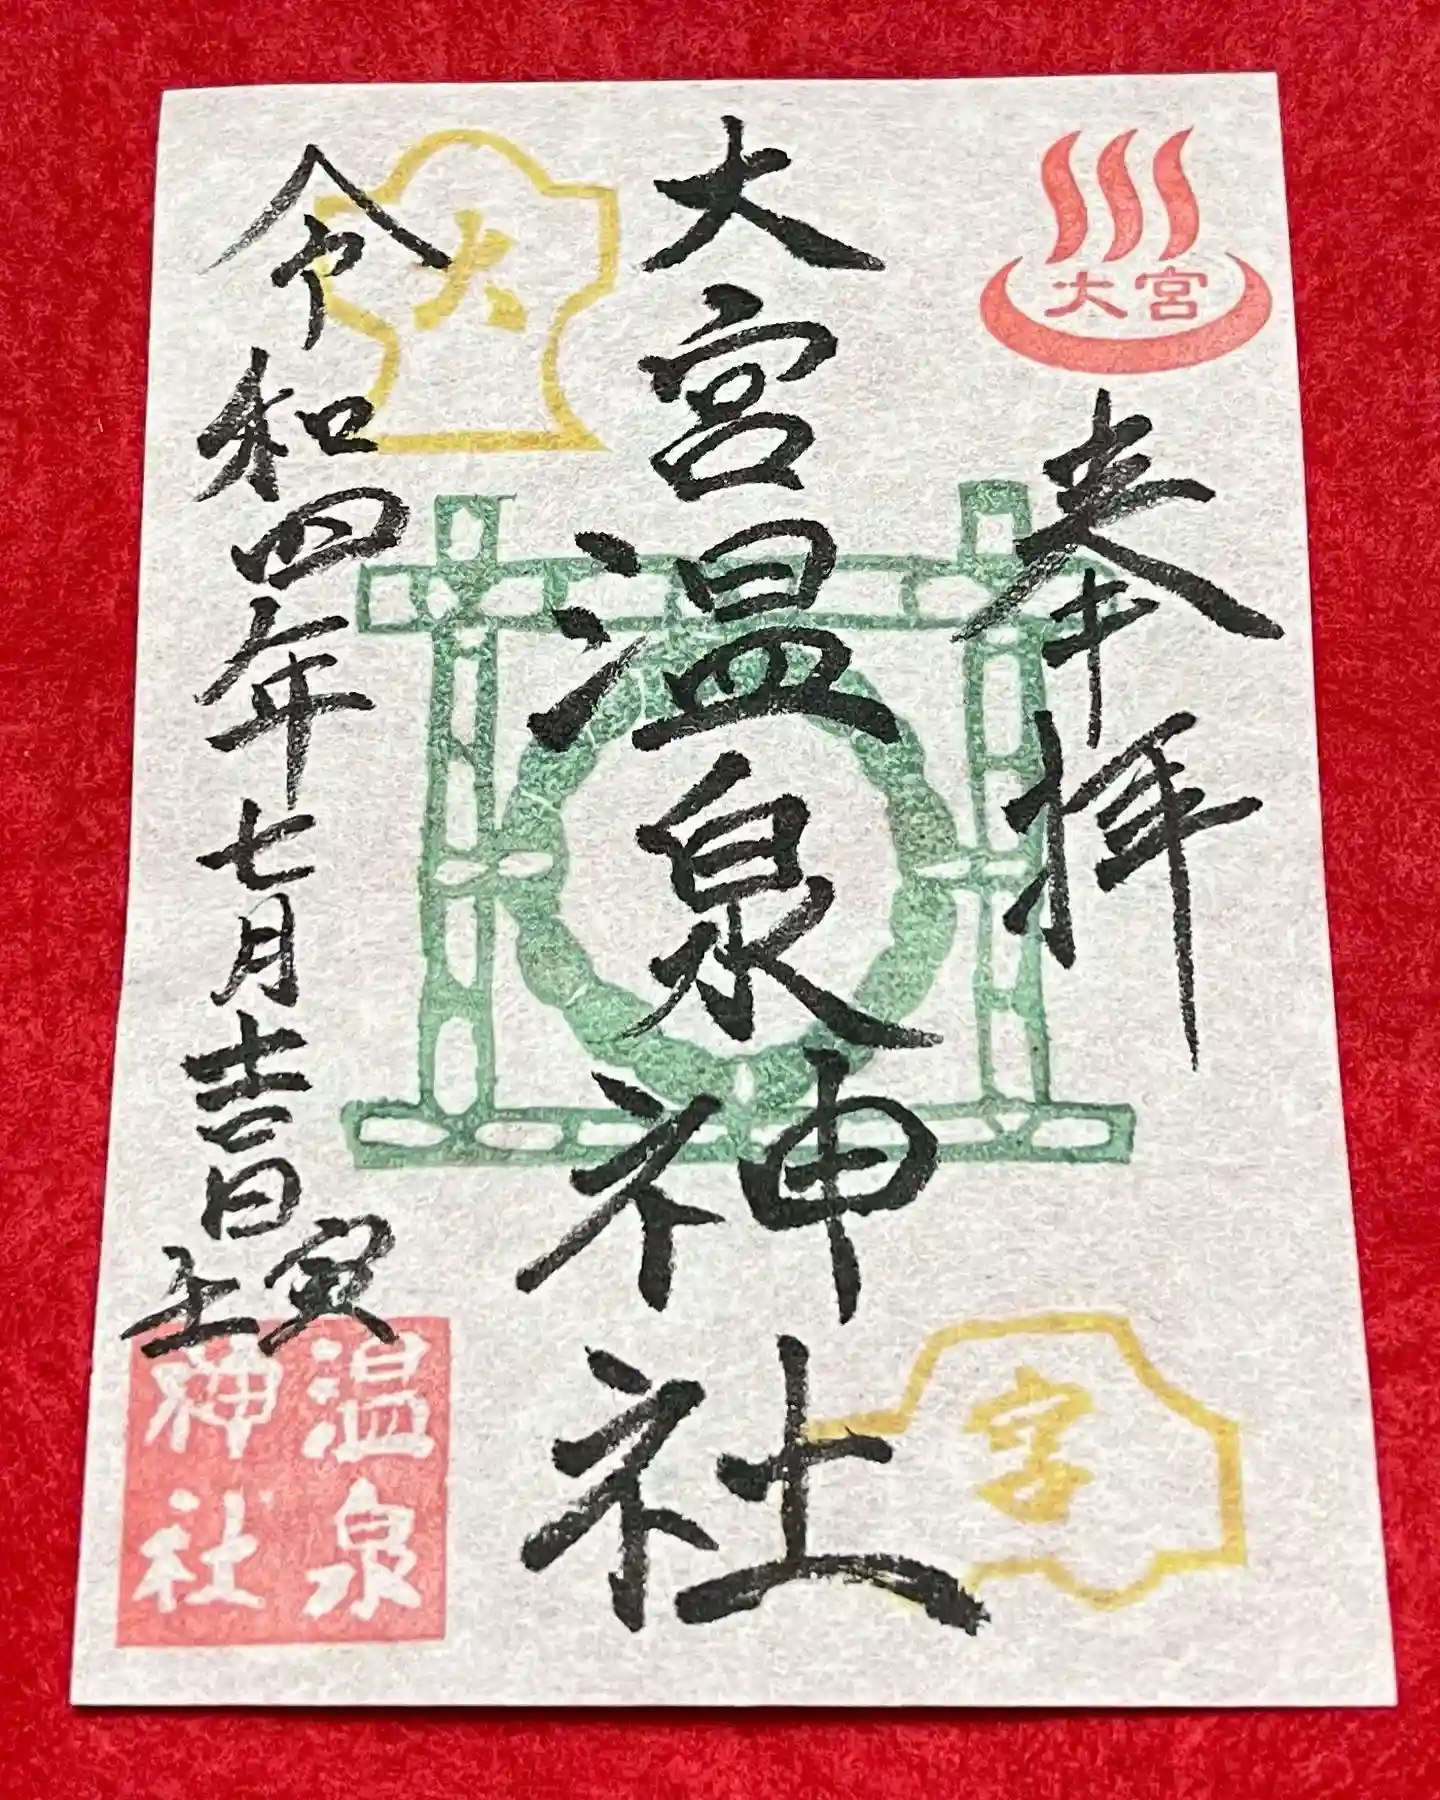 大宮
奉拝
大宮温泉神社
令和四年七月吉日
壬寅
大
宮
温泉
神社